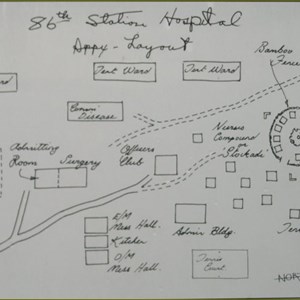 86th Station Hospital
Appx - Layout
Bamboo
Fence
Tent Ward
Tent Ward
Disease
Nurses
Compound
or
"Stockade"
Admitting
Room
Surgery
Officers
Club
E/M
Mess Hall.
Kitchen
O/M
Mess Hall.
Admin Bldg.
Tennis
Court